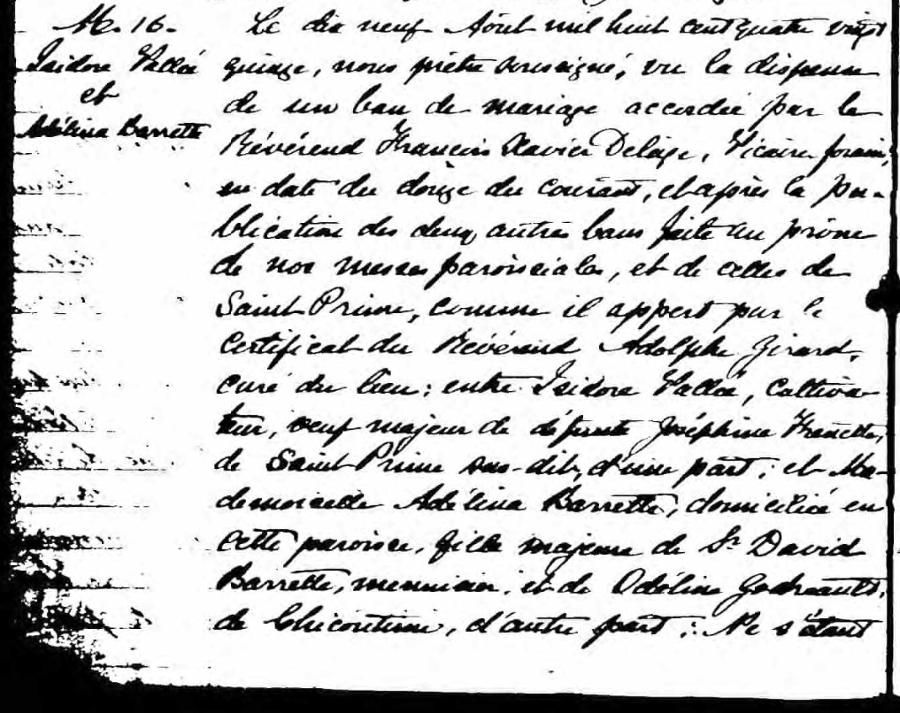 M. 16.
Isidore Vallée
et
Adélina Barrette
Le dix neuf Août mil huit cent quatre vingt
quinze, nous prêtre soussigné, vu la dispense
de un ban de mariage accordée par le
Révérend Francois Xavier Delâge, Vicaire forain,
en date du douze du courant, et après la pu-
blication des deux autres bans faite au prône
de nos messes paroissiales, et de celles de
Saint Prime, comme il appert par le
certificat du Révérend Adolphe Girard,
curé du lieu; entre Isidore Vallée, cultiva-
teur, veuf majeur de défunte Joséphine
de Saint Prime sus-dit, d'une part; et Ma-
demoiselle Adélina Barrette, domiciliée en
cette paroisse, fille majeure de Sr David
Barrette, menuisier, et de Odéline Godreault,
de Chicoutimi, d'autre part; Ne s'étant